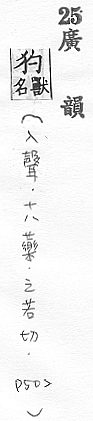 25廣韻
犳
獸名
(入聲．十八藥．之若切．
)